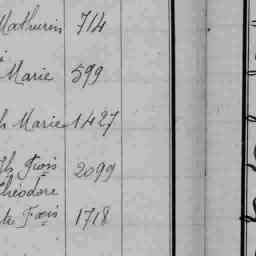 Mathurin 714
Marie 599
h Marie 1427
th Fçois 2099
Théodore
te Fçois 1718